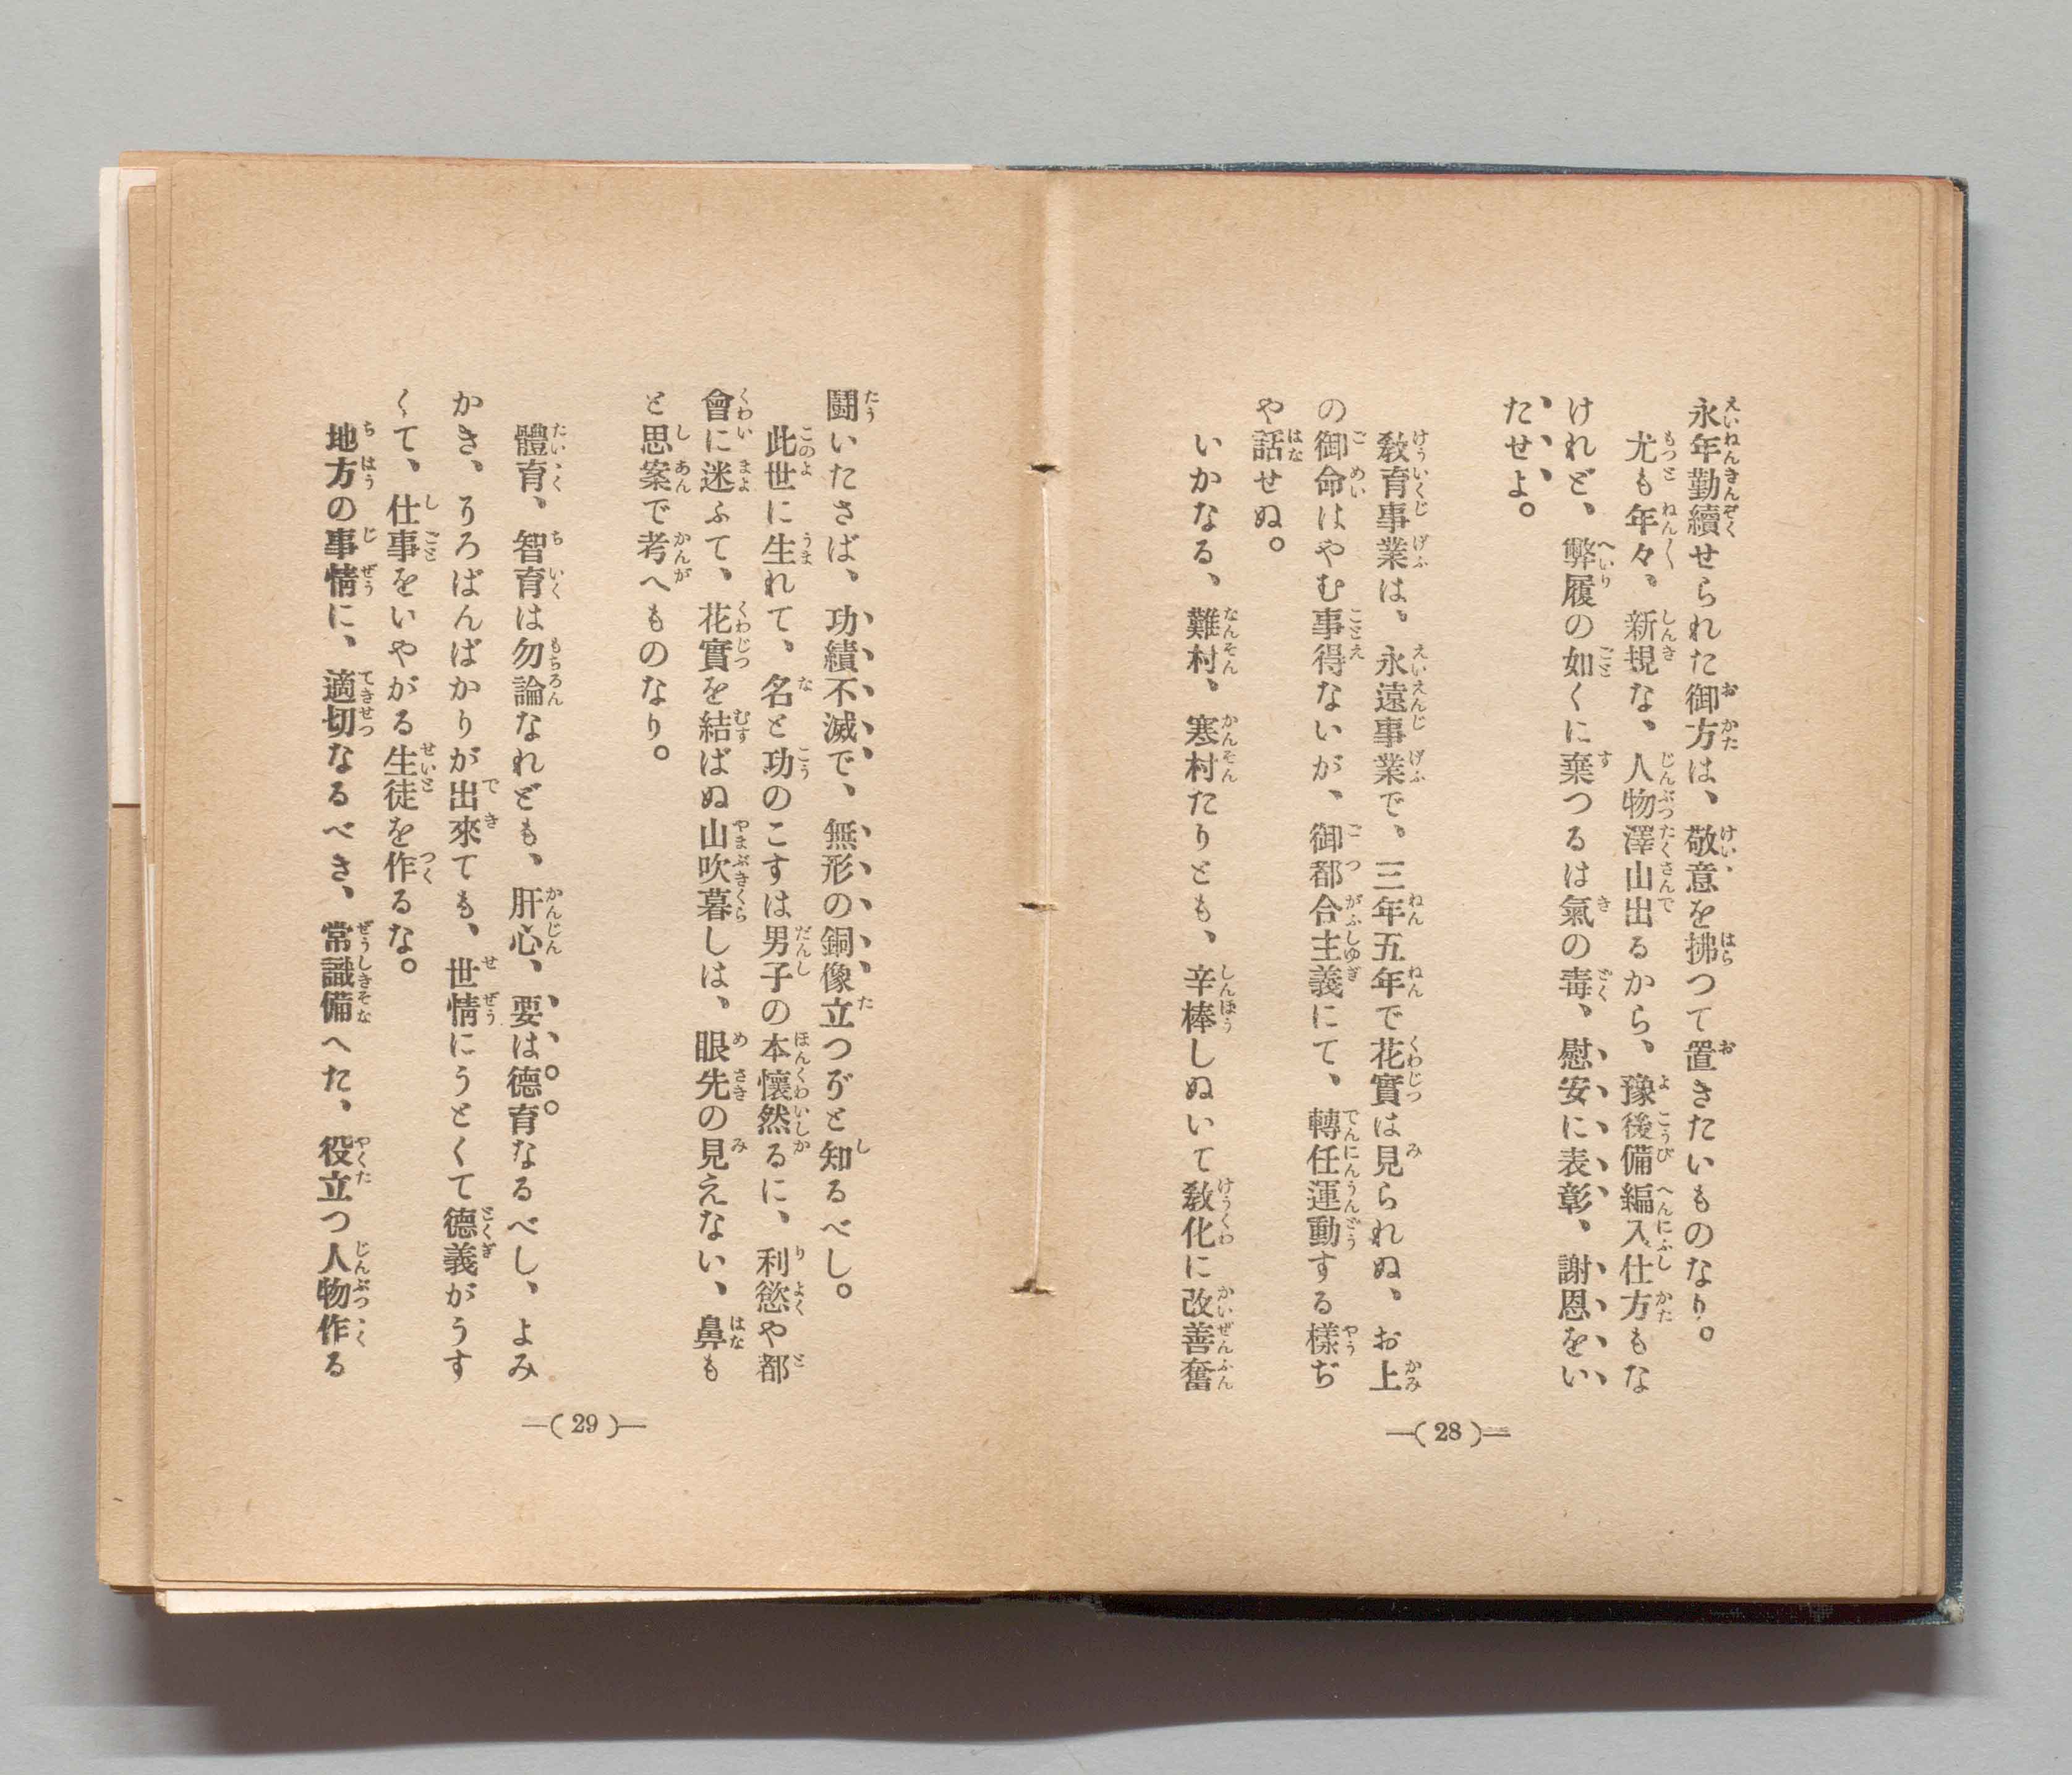 永年勤續せられた御方は、敬意を拂つて置きたいものなり。
尤も年々、新規な、人物澤山出るから、豫後備編入仕方もな
けれど、弊履の如くに棄つるは氣の毒、慰安に表彰、謝恩をい
たせよ。
教育事業は、永遠事業で、三年五年で花實は見られぬ、お上
の御命はやむ事得ないが、御都合主義にて、轉任運動する樣ぢ
や話せぬ。
いかなる、難村、寒村たりとも、辛棒しぬいて教化に改善奮
—( 28 )—
鬪いたさば、功績不滅で、無形の銅像立つぞと知るべし。
此世に生れて、名と功のこすは男子の本懷然るに、利慾や都
會に迷ふて、花實を結ばぬ山吹暮しは、眼先の見えない、鼻も
と思案で考へものなり。
體育、智育は勿論なれども、肝心、要は德育なるべし、よみ
かき、そろばんばかりが出來ても、世情にうとくて德義がうす
くて、仕事をいやがる生徒を作るな。
地方の事情に、適切なるべき、常識備へた、役立つ人物作る
—( 29 )—